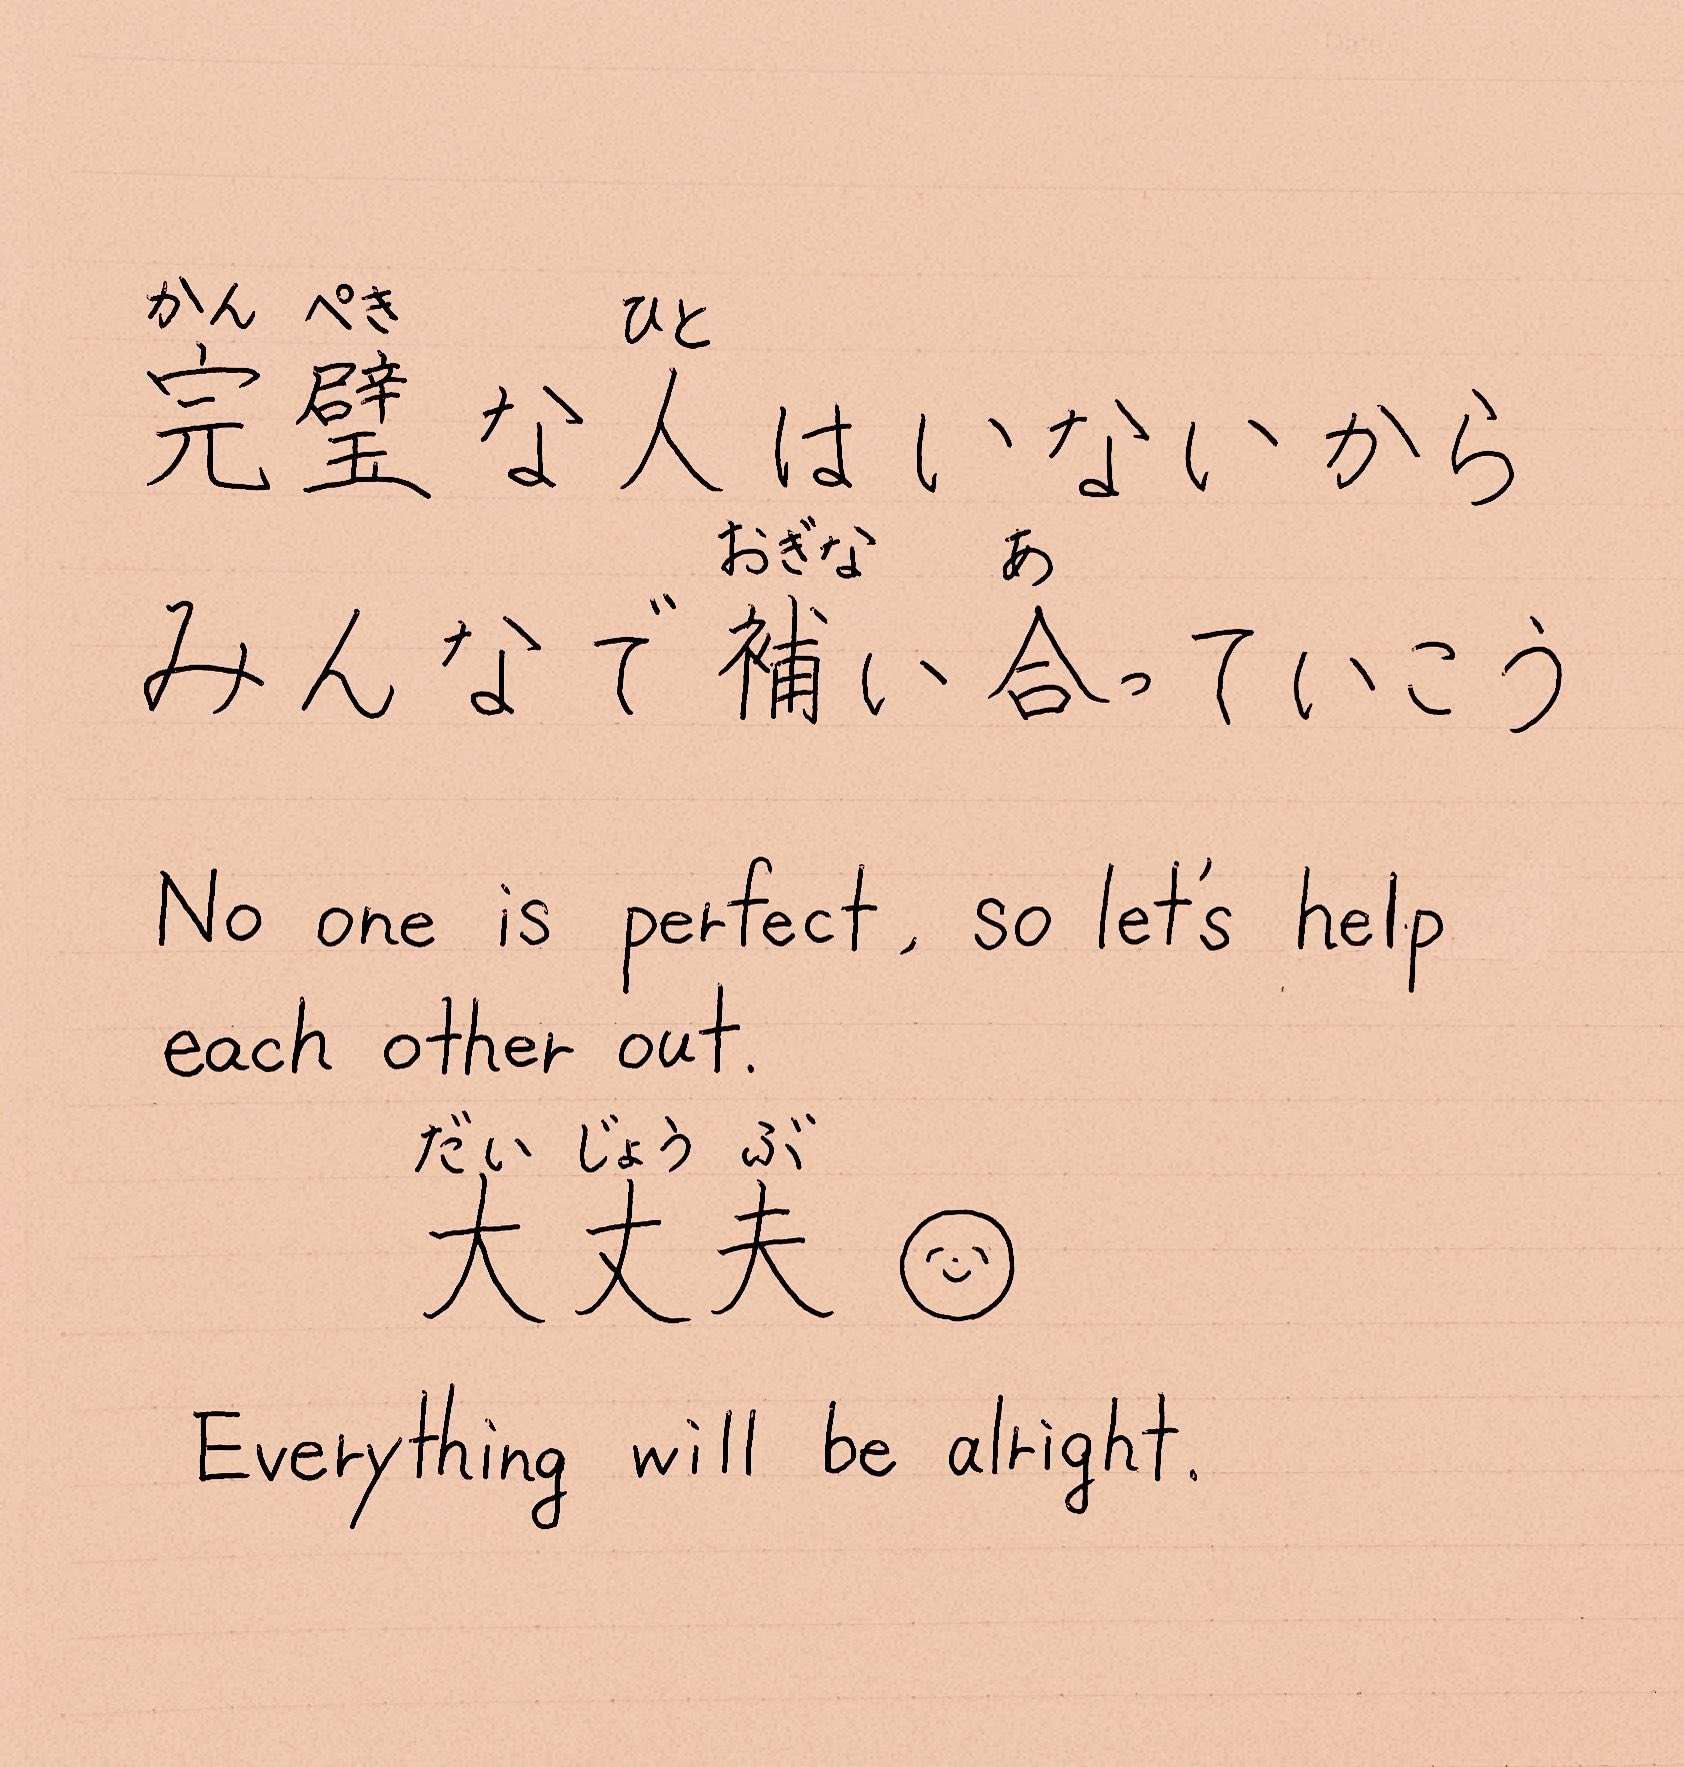 かん ぺき ひと
完璧な人はいないから
おぎな あ
みんなで補い合っていこう
No one is perfect, so let's help
each other out.
だい じょう ぶ
大丈夫
Everything will be alright.